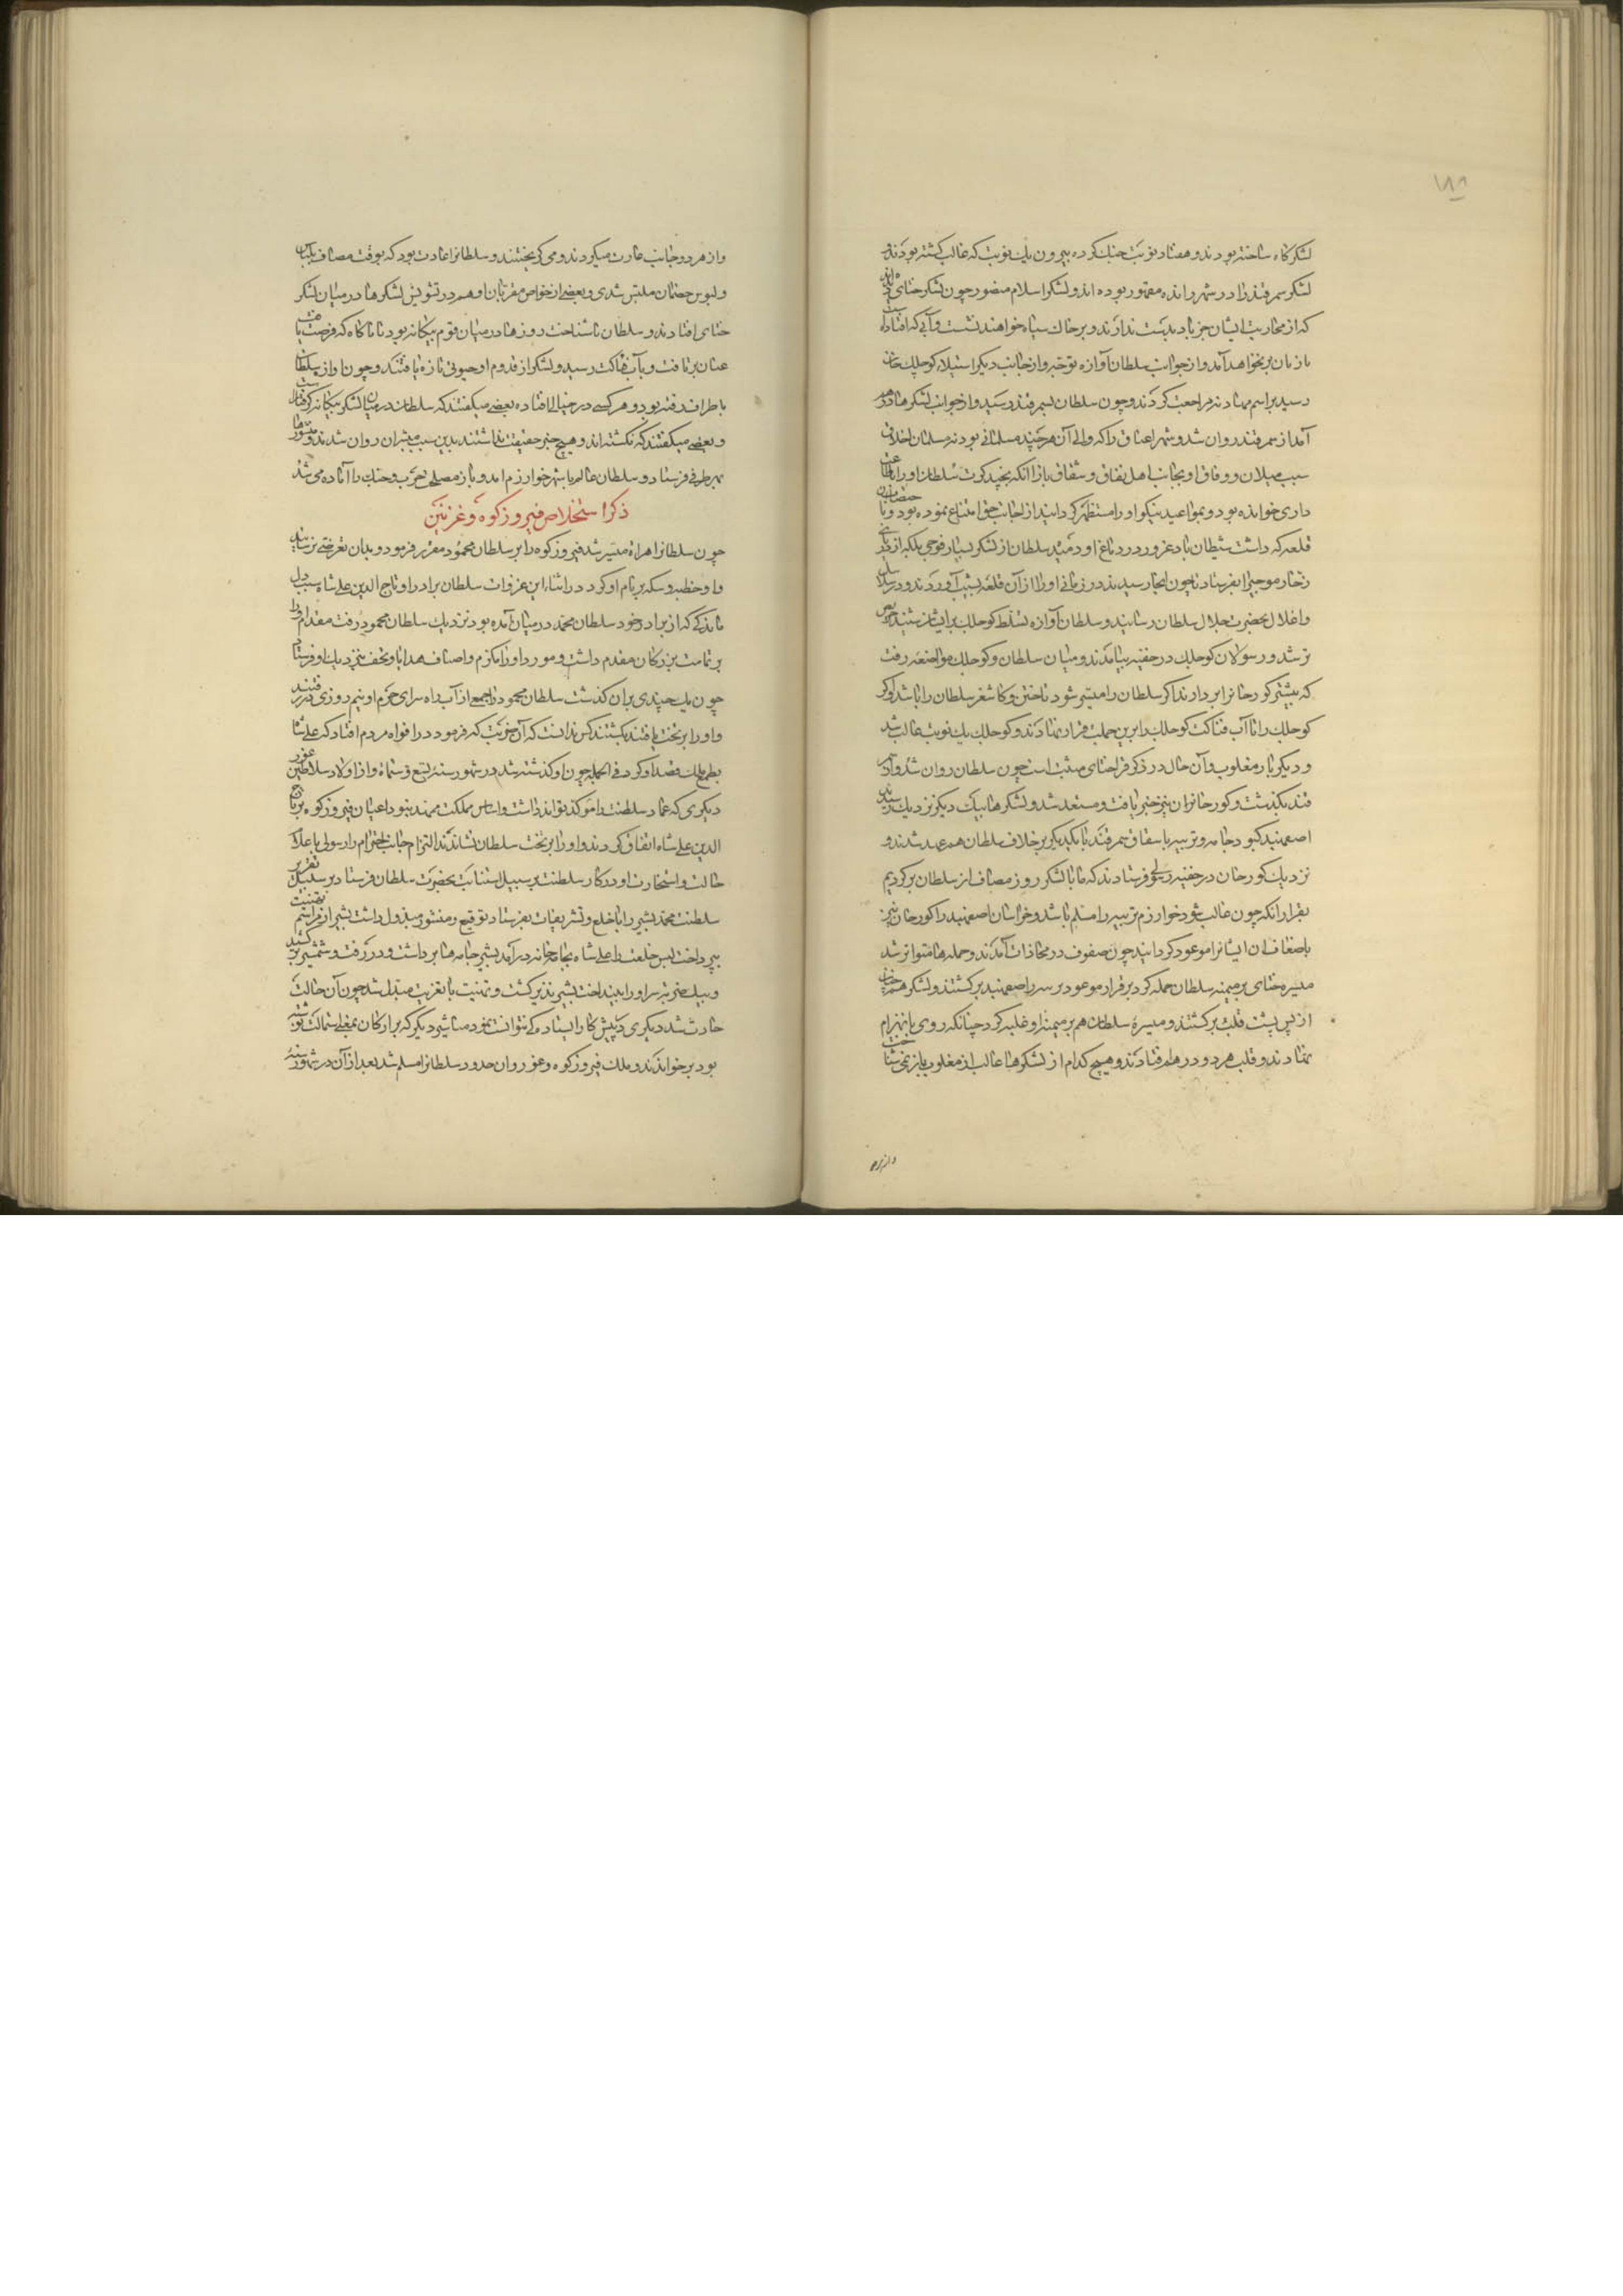 ۱۸۸
لشکرگاه ساخته بودند و هفتاد نوبت جنک کرده بیرون یک نوبت که غالب کشته بودند
لشکر سمرقند را در شهر رانده مقهور بوده اند و لشکر اسلام منصور چون لشکر ختای
که از محاربت ایشان جز باد بدست ندارند و بر خاک سیاه خواهند نشست و آبی که افتاد
باز نان بر نخواهد آمد و از جوانب سلطان آوازه توجه و از جانب دیکر استیلاء کوجلک خان
رسید براسم مهادنه مراجعت کردند و چون سلطان بسمرقند رسید و از جوانب لشکرها
آمد از سمرقند روان شد و شهر اغناق را که والی آن هر چند مسلمانی بود نه مسلمان اخلاق
سبب میلان و وفاق او بجانب اهل نفاق و شقاق باز آنکه بچند کرت سلطان او را
داری خوانده بود و بمواعید نیکو او را مستظهر کردانید از اجابت حق امتناع نموده بود و
قلعه که داشت شیطان باد غرور در دماغ او دمید سلطان از لشکر بسیار فوجی بلکه از
زخار موجی را بفرستاد تا چون انجا رسیدند در زمانی او را از آن قلعه بشیب آوردند و در
و اغلال بحضرت جلال سلطان رسانید و سلطان آوازه تسلط کوجلک بر ایشان شنید
تر شد و رسولان کوجلک در خفیه بیامدند و میان سلطان و کوجلک مواضعه رفت
که بیشتر کورخان را بردارند اکر سلطان را میسر شود تا ختن و کاشغر سلطان را باشد و اکر
کوجلک را تا آب فناکت کوجلک را برین جملت قرار نهادند و کوجلک یک نوبت غالب شد
و دیکر بار مغلوب و آن حال در ذکر قراختای مثبت است چون سلطان روان شد و از
قند بکذشت و کورخان را ن نیز خبر یافت و مستعد شد و لشکرها بیک دیکر نزدیک
اصفهبد کبود جامه و تربیه باسقاق سمرقند با یکدیکر بر خلاف سلطان هم عهد شدند و
نزدیک کورخان در خفیه رسولی فرستادند که ما با لشکر روز مصاف از سلطان برکردیم
بقرار آنکه چون غالب شود خوارزم تربیه را مسلم باشد و خراسان اصفهبد را کورخان نیز
باضعاف ان ایشان را موعود کردانید چون صفوف در محاذات آمدند و حمله ها متواتر شد
میسره ختای بر میمنه سلطان حمله کرد بر قرار موعود بر سر را اصفهبد برکشتند و لشکر هم
از پس پشت قلب برکشتند و میسره سلطان هم بر میمنه او غلبه کرد چنانکه روی بانهزام
نهادند و قلب هر دو در هم افتادند و هیچ کدام از لشکرها غالب از مغلوب باز نمی شناخت
و از هر دو
و از هر دو جانب غارت میکردند و می کریختند و سلطان را عادت بود که بوقت مصاف
و لبوس خصمان ملتبس شدی و بعضی از خواص مقربان او هم در تشویش لشکرها در میان لشکر
ختای افتادند و سلطان ناشناخت روزها در میان قوم بیکانه بود تا ناکاه که فرصت
عنان بر تافت و بآب فناکت رسید و لشکر از قدوم او حیوتی تازه یافتند و چون اوازه سلطان
باطراف رفته بود و هر کسی در خیالی افتاده بعضی میکفتند که سلطان در میان لشکر بیکانه کرفتار
و بعضی میکفتند که بکشته اند و هیچ خبر حقیقت نداشتند بدین سبب مبشران روان شدند و منشورها
بهر طرفی فرستاد و سلطان عالم با شهر خوارزم امد و باز مصلح حرب و جنک را آماده می شد
ذکر استخلاص فیروزکوه و غزنین
چون سلطان را هراة میسر شد فیروزکوه را بر سلطان محمود مقرر فرمود و بدان تعرضی نرسانید
و او خطبه و سکه بر نام او کرد در اثناء این غزوات سلطان برادر او تاج الدین علی شاه سبب
ماندکی که از برادر خود سلطان محمد در میان آمده بود نزدیک سلطان محمود رفت مقدم او را
بر تمامت بزرکان مقدم داشت و مورد او را مکرم و اصناف هدایا و تحف بنزدیک او فرستاد
چون یک چندی بران کذشت سلطان محمود را جمعی از آب راه سرای حرم او نیم روزی در رفتند
و او را بر تخت یافتند بکشتند کس ندانست که آن ضربت که فرمود در افواه مردم افتاد که علی شاه
بطمع ملک قصد او کرد فی الجمله چون او کذشته شد در شهور سنه تسع و ستمائه و از اولاد سلاطین غور
دیکری که عماد سلطنت را مؤکد تواند داشت و اساس مملکت ممهد نبود اعیان فیروزکوه بر تاج
الدین علی شاه اتفاق کردند و او را بر تخت سلطان نشاندند التزام جانب احترام را رسولی باعلام
حالت و استجازت او در کار سلطنت بر سبیل استنابت بحضرت سلطان فرستاد بر سبیل تقریر
سلطنت محمد بشیر را با خلع و تشریفات بفرستاد توقیع و منشور مبذول داشت بشیر از مراسم تهنیت
بپرداخت لبس خلعت را علی شاه بجامه خانه در آمد بشیر جامه ها برداشت و در رفت و شمشیر بر کشید
و بیک ضربه سر او را بینداخت بشیر نذیر کشت و تهنیت با تعزیت مبدل شد چون آن حالت
حادث شد دیکری در پیش کار ایستادکی نتوانست نمود مناشیر دیکر که بر ارکان بمعنی استمالت نوشته
بود بر خواندند و ملک فیروزکوه و غور و ان حدود سلطان را مسلم شد بعد از آن در شهور سنه